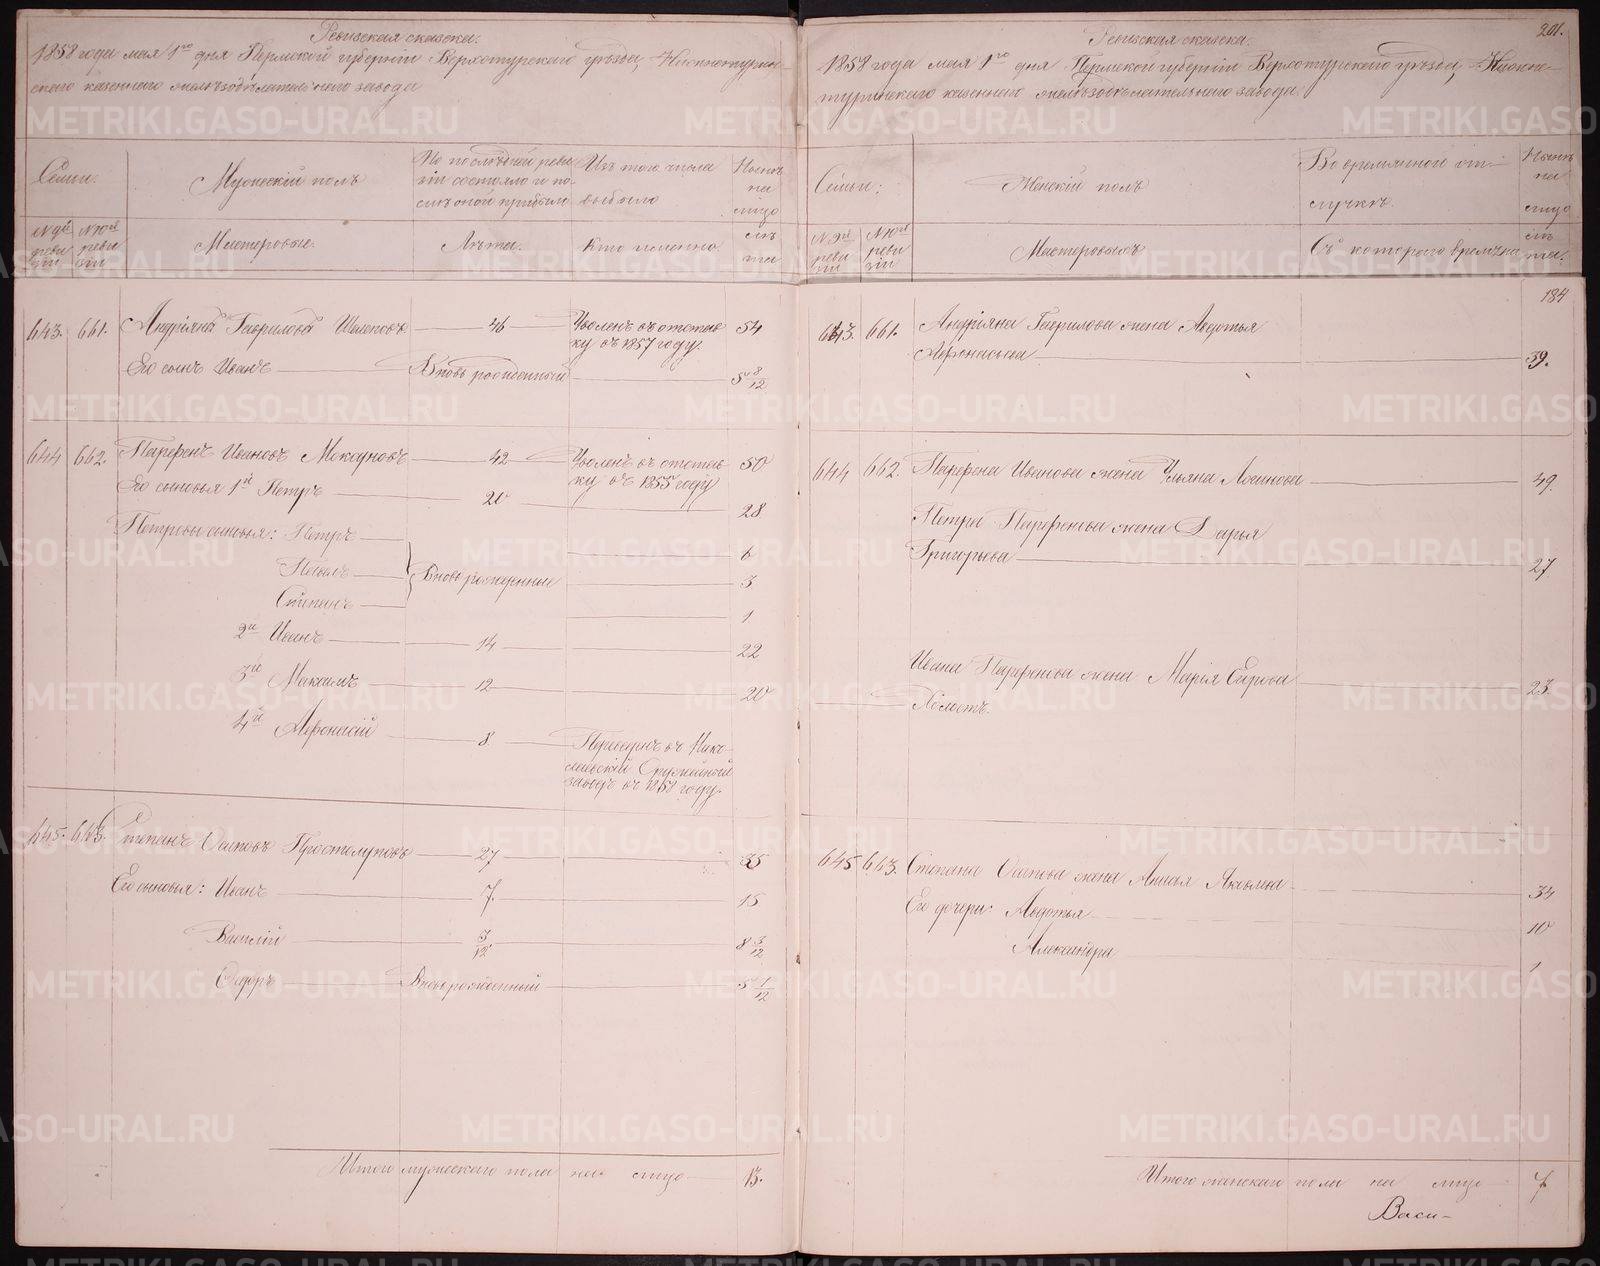 Ревизская сказка.
1858 года мая 1го дня Пермской губернiи Верхотурскаго уѣзда, Нижнетурин-
скаго казеннаго желѣзодѣлательнаго завода
Семьи.
Мужескiй полъ
По последней реви-
зiи состояло и по-
слѣ оной прибыло
Изъ того числа
выбыло
Нынѣ
на
лицо
№ 9й
реви
зiи
№ 10й
реви
зiи
Мастеровые.
Лѣта.
Кто именно
лѣ
та
643. 661. Андрiянъ Гавриловъ Шаленовъ 46 Уволенъ въ отстав- 54
ку въ 1857 году.
Его сынъ Иванъ Вновь рожденный 5 8/12
644 662. Парфенъ Ивановъ Мокауновъ 42 Уволенъ въ отстав- 50
ку въ 1855 году
Его сыновья 1й Петръ 20 28
Петровы сыновья: Петръ 6
Павелъ Вновь рожденные 3
Степанъ 1
2й Иванъ 14 22
3й Максимъ 12 20
4й Афонасiй 8 Переведенъ въ Нико-
лаевскiй Оружейный
заводъ въ 1858 году.
645. 663. Степанъ Осиповъ Простолуповъ 27 35
Его сыновья: Иванъ 7. 15
Василiй 3/12 8 3/12
Федоръ Вновь рожденный 5 1/12
Итого мужескаго пола на лицо 13.
201.
Ревизская сказка.
1858 года мая 1го дня Пермской губернiи Верхотурскаго уѣзда, Нижне-
туринскаго казеннаго желѣзодѣлательнаго завода.
Семьи:
Женскiй полъ
Во временной от-
лучкѣ.
Нынѣ
на
лицо
№ 9й
реви
зiи
№ 10й
реви
зiи
Мастеровыхъ
Съ котораго времени
лѣ
та.
184
643. 661. Андрiяна Гаврилова жена Авдотья
Афонасьева 39.
644 662 Парфена Иванова жена Ульяна Логинова 49.
Петра Парфенова жена Дарья
Григорьева 27
Ивана Парфенова жена Марiя 23.
Холостъ.
645 663. Степана Осипова жена Анисья Якимова 34
Его дочери: Авдотья 10
Александра 1
Итого женскаго пола на лицо 7
Васи-
METRIKI.GASO-URAL.RU